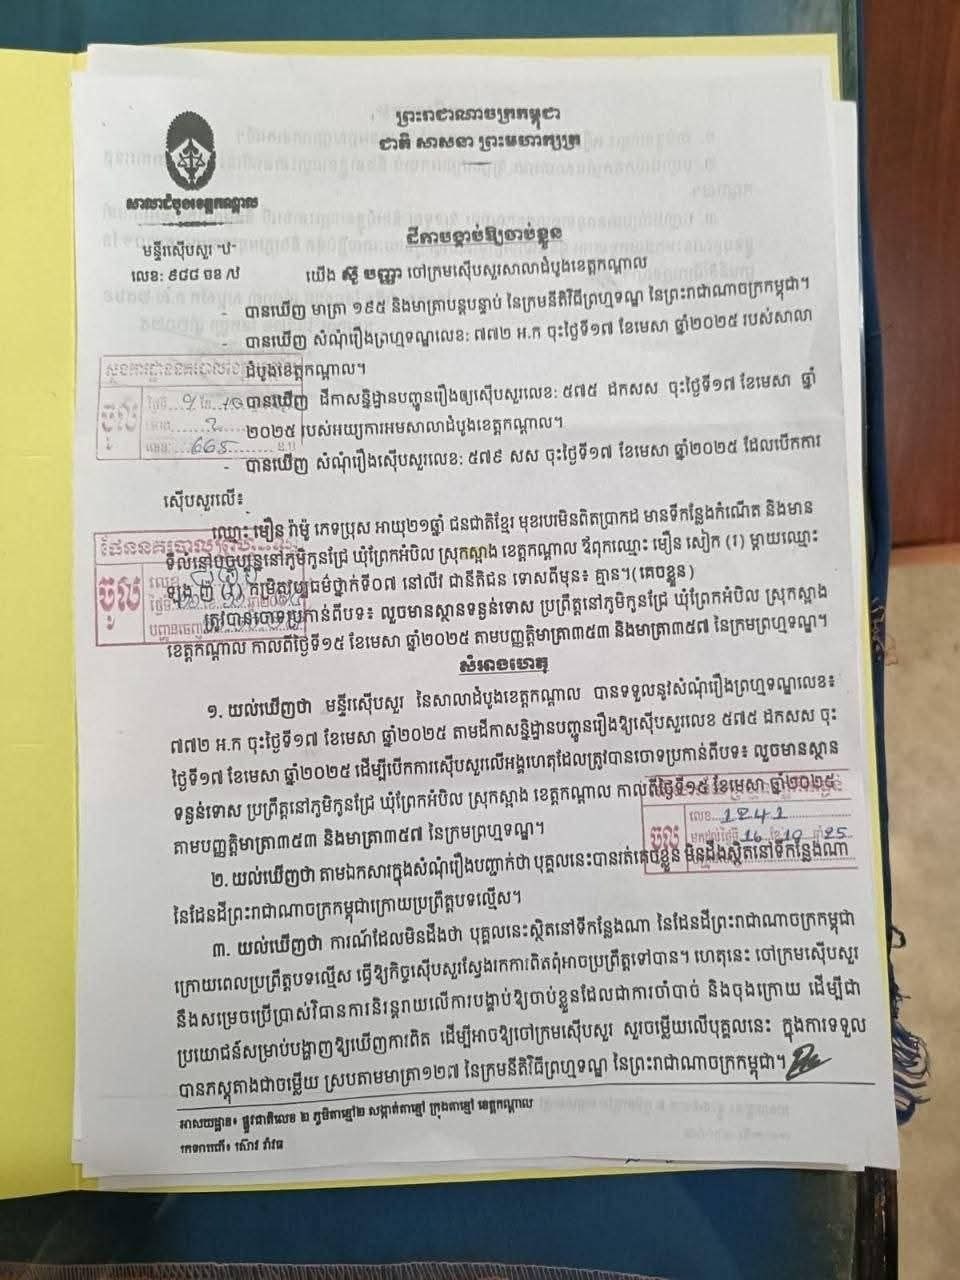 ព្រះរាជាណាចក្រកម្ពុជា
ជាតិ សាសនា ព្រះមហាក្សត្រ
សាលាដំបូងខេត្តកណ្តាល
ដីកាបង្គាប់ឱ្យចាប់ខ្លួន
មន្ទីរស៊ើបសួរ
លេខ: ៩៨៨ ចខ
យើង ស៊ូ បញ្ញា ចៅក្រមស៊ើបសួរសាលាដំបូងខេត្តកណ្តាល
- បានឃើញ មាត្រា ១៩៥ និងមាត្រាបន្តបន្ទាប់ នៃក្រមនីតិវិធីព្រហ្មទណ្ឌ នៃព្រះរាជាណាចក្រកម្ពុជា។
- បានឃើញ សំណុំរឿងព្រហ្មទណ្ឌលេខ: ៧៧២ អ.ក ចុះថ្ងៃទី១៧ ខែមេសា ឆ្នាំ២០២៥ របស់សាលា
ដំបូងខេត្តកណ្តាល។
- បានឃើញ ដីកាសន្និដ្ឋានបញ្ជូនរឿងឲ្យស៊ើបសួរលេខ: ៥៧៥ ដកសស ចុះថ្ងៃទី១៧ ខែមេសា ឆ្នាំ
២០២៥ របស់អយ្យការអមសាលាដំបូងខេត្តកណ្តាល។
ចូល
665
- បានឃើញ សំណុំរឿងស៊ើបសួរលេខ: ៥៧៩ សស ចុះថ្ងៃទី១៧ ខែមេសា ឆ្នាំ២០២៥ ដែលបើកការ
ស៊ើបសួរលើ៖
ឈ្មោះ មឿន រ៉ាម៉ូ ភេទប្រុស អាយុ២១ឆ្នាំ ជនជាតិខ្មែរ មុខរបរមិនពិតប្រាកដ មានទីកន្លែងកំណើត និងមាន
ទីលំនៅបច្ចុប្បន្ននៅភូមិកូនជ្រែ ឃុំព្រែកអំបិល ស្រុកស្អាង ខេត្តកណ្តាល ឪពុកឈ្មោះ មឿន សៀក (រ) ម្តាយឈ្មោះ
(រ) កម្រិតវប្បធម៌ថ្នាក់ទី០៧ នៅលីវ ជានីតិជន ទោសពីមុន៖ គ្មាន។(គេចខ្លួន)
ចូល
ត្រូវបានចោទប្រកាន់ពីបទ៖ លួចមានស្ថានទម្ងន់ទោស ប្រព្រឹត្តនៅភូមិកូនជ្រែ ឃុំព្រែកអំបិល ស្រុកស្អាង
ខេត្តកណ្តាល កាលពីថ្ងៃទី១៥ ខែមេសា ឆ្នាំ២០២៥ តាមបញ្ញត្តិមាត្រា៣៥៣ និងមាត្រា៣៥៧ នៃក្រមព្រហ្មទណ្ឌ។
សំអាងហេតុ
១. យល់ឃើញថា មន្ទីរស៊ើបសួរ នៃសាលាដំបូងខេត្តកណ្តាល បានទទួលនូវសំណុំរឿងព្រហ្មទណ្ឌលេខ៖
៧៧២ អ.ក ចុះថ្ងៃទី១៧ ខែមេសា ឆ្នាំ២០២៥ តាមដីកាសន្និដ្ឋានបញ្ជូនរឿងឱ្យស៊ើបសួរលេខ ៥៧៥ ដកសស ចុះ
ថ្ងៃទី១៧ ខែមេសា ឆ្នាំ២០២៥ ដើម្បីបើកការស៊ើបសួរលើអង្គហេតុដែលត្រូវបានចោទប្រកាន់ពីបទ៖ លួចមានស្ថាន
ទម្ងន់ទោស ប្រព្រឹត្តនៅភូមិកូនជ្រែ ឃុំព្រែកអំបិល ស្រុកស្អាង ខេត្តកណ្តាល កាលពីថ្ងៃទី១៥ ខែមេសា ឆ្នាំ២០២៥
តាមបញ្ញត្តិមាត្រា៣៥៣ និងមាត្រា៣៥៧ នៃក្រមព្រហ្មទណ្ឌ។
ចូល
លេខ 1241
មកដល់ថ្ងៃទី 16 ខែ 10 ឆ្នាំ 25
២. យល់ឃើញថា តាមឯកសារក្នុងសំណុំរឿងបញ្ជាក់ថា បុគ្គលនេះបានរត់គេចខ្លួន មិនដឹងស្ថិតនៅទីកន្លែងណា
នៃដែនដីព្រះរាជាណាចក្រកម្ពុជាក្រោយប្រព្រឹត្តបទល្មើស។
៣. យល់ឃើញថា ការណ៍ដែលមិនដឹងថា បុគ្គលនេះស្ថិតនៅទីកន្លែងណា នៃដែនដីព្រះរាជាណាចក្រកម្ពុជា
ក្រោយពេលប្រព្រឹត្តបទល្មើស ធ្វើឱ្យកិច្ចស៊ើបសួរស្វែងរកការពិតពុំអាចប្រព្រឹត្តទៅបាន។ ហេតុនេះ ចៅក្រមស៊ើបសួរ
នឹងសម្រេចប្រើប្រាស់វិធានការនិរន្តរាយលើការបង្គាប់ឱ្យចាប់ខ្លួនដែលជាការចាំបាច់ និងចុងក្រោយ ដើម្បីជា
ប្រយោជន៍សម្រាប់បង្ហាញឱ្យឃើញការពិត ដើម្បីអាចឱ្យចៅក្រមស៊ើបសួរ សួរចម្លើយលើបុគ្គលនេះ ក្នុងការទទួល
បានភស្តុតាងជាចម្លើយ ស្របតាមមាត្រា១២៧ នៃក្រមនីតិវិធីព្រហ្មទណ្ឌ នៃព្រះរាជាណាចក្រកម្ពុជា។
អាសយដ្ឋាន៖ ផ្លូវជាតិលេខ ២ ភូមិតាខ្មៅ២ សង្កាត់តាខ្មៅ ក្រុងតាខ្មៅ ខេត្តកណ្តាល